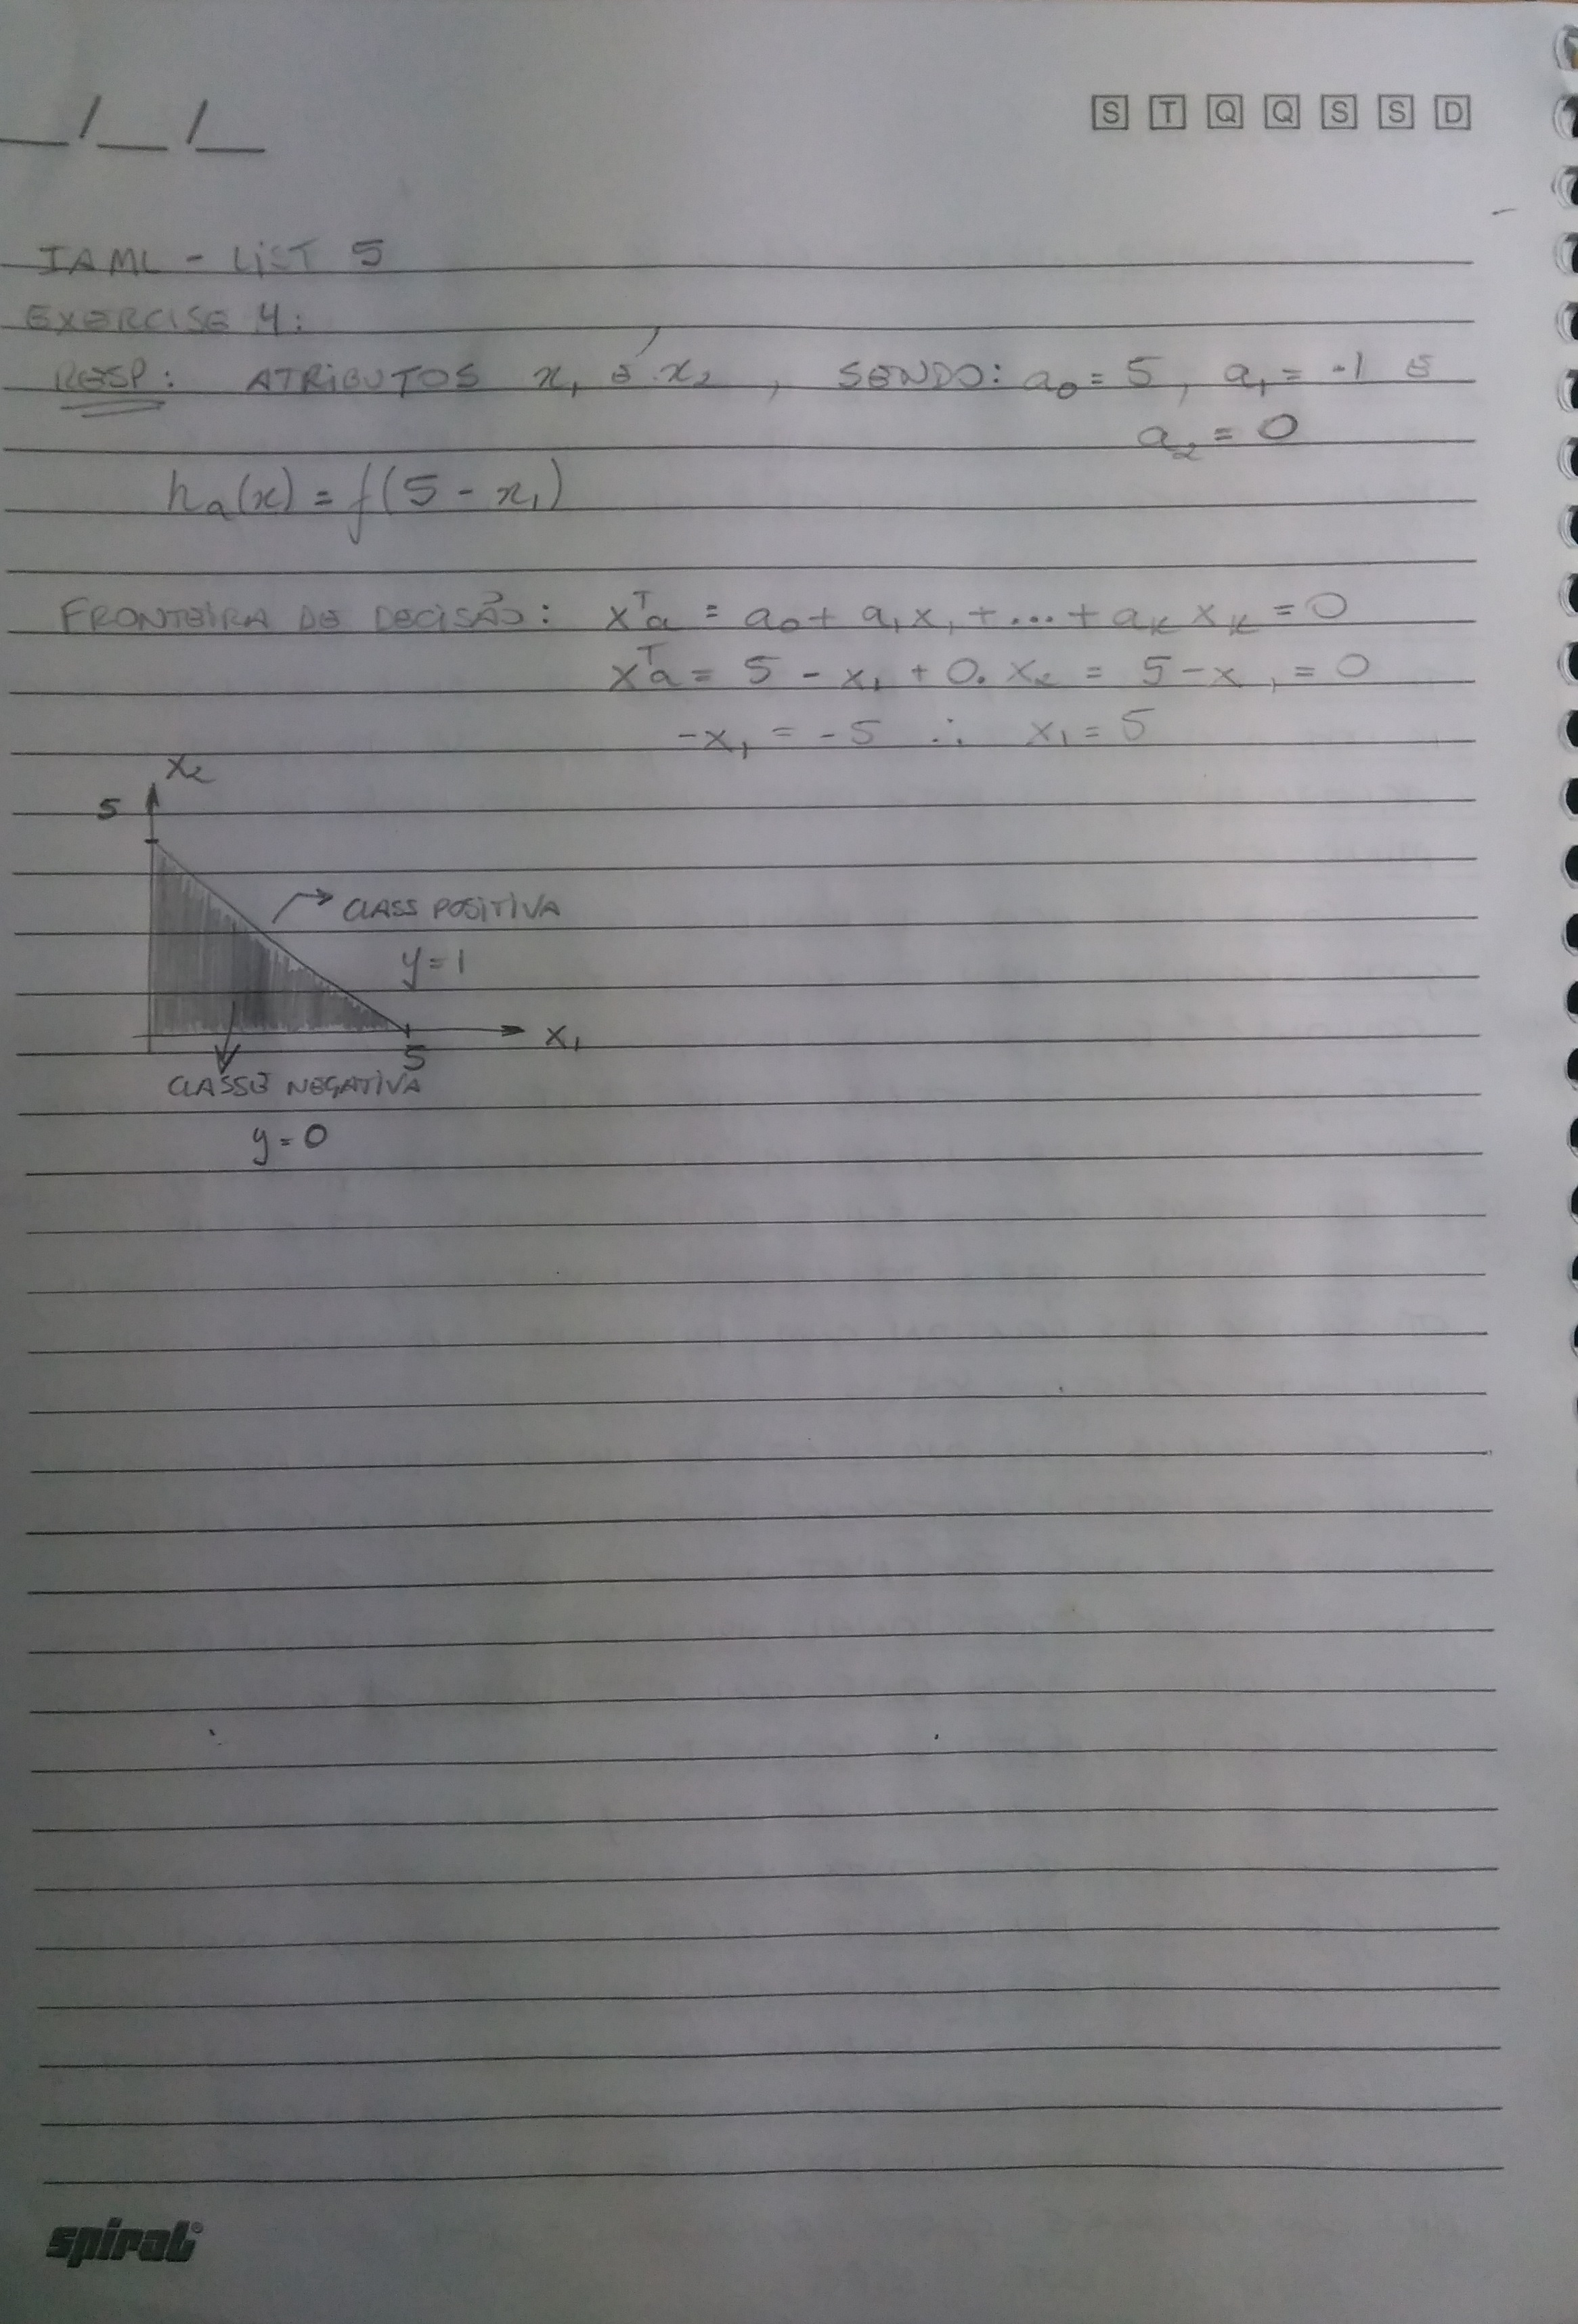 __/__/__
S T Q Q S S D
IAML - LIST 5
EXERCISE 4:
RESP: ATRIBUTOS x₁ E x₂, SENDO: a₀ = 5, a₁ = -1 E
a₂ = 0
hₐ(x) = f(5 - x₁)
FRONTEIRA DE DECISÃO: xᵀa = a₀ + a₁x₁ + ... + aₖxₖ = 0
xᵀa = 5 - x₁ + 0. x₂ = 5 - x₁ = 0
-x₁ = -5 ∴ x₁ = 5
x₂
5
CLASS POSITIVA
y = 1
x₁
5
CLASSE NEGATIVA
y = 0
spiral®